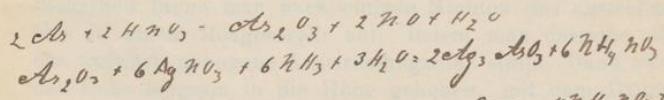 2 As + 2 HNO3 = As2O3 + 2 NO + H2O
As2O3 + 6 AgNO3 + 6 NH3 + 3 H2O = 2 Ag3 AsO3 + 6 NH4 NO3